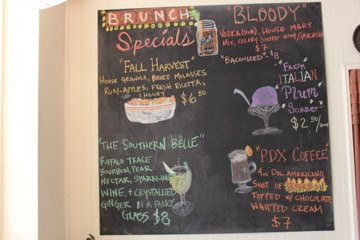 BRUNCH
Specials
"FALL HARVEST"
HOUSE GRANOLA, BAKED MOLASSES
RUM-APPLES, FRESH RICOTTA,
HONEY
$6.50
"THE SOUTHERN BELLE"
BUFFALO TRACE
BOURBON, PEAR
NECTAR, SPARKLING
WINE, + CRYSTALLIZED
GINGER IN A FANCY
GLASS $8
"BLOODY"
VODKA, HOUSE MARY
MIX, CELERY SALTED RIM/GARNISH
$7
"BACONIZED" - $8
"FRESH
ITALIAN
Plum
SORBET"
$2.50
"PDX COFFEE"
AMERICANO,
SHOT OF
TOPPED W/CHOCOLATE
WHIPPED CREAM
$7